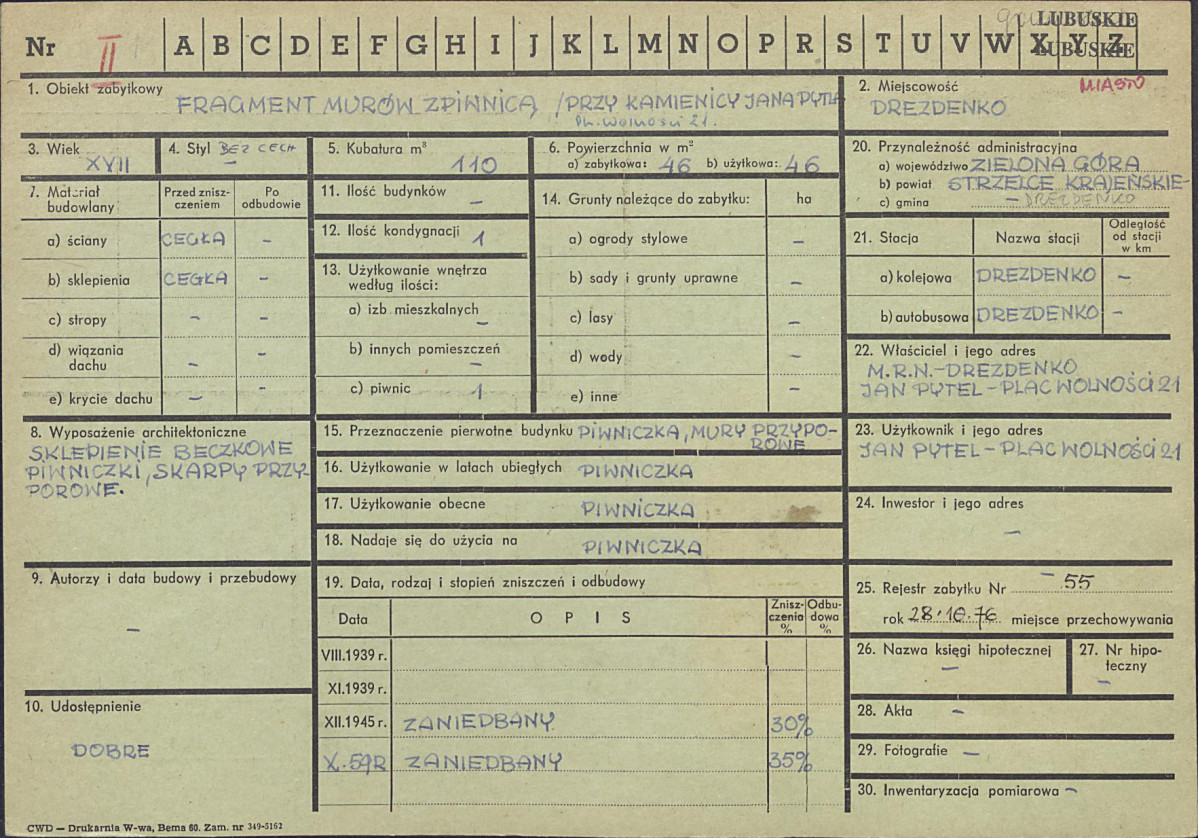 LUBUSKIE
LUBUSKIE
Nr II A B C D E F G H I J K L M N O P R S T U V W X Y Z
1. Obiekt zabytkowy
FRAGMENT MURÓW Z PIWNICĄ /PRZY KAMIENICY JANA PYTLA
Pl. Wolności 21.
2. Miejscowość
MIASTO
DREZDENKO
3. Wiek
XVII
4. Styl BEZ CECH
–
5. Kubatura m³
110
6. Powierzchnia w m²
a) zabytkowa: 46 b) użytkowa: 46
20. Przynależność administracyjna
a) województwo ZIELONA GÓRA
b) powiat STRZELCE KRAJEŃSKIE-
c) gmina – DREZDENKO
7. Materiał budowlany
Przed znisz-
czeniem
Po
odbudowie
a) ściany CEGŁA –
b) sklepienia CEGŁA –
c) stropy – –
d) wiązania
dachu – –
e) krycie dachu – –
11. Ilość budynków
–
12. Ilość kondygnacji 1
13. Użytkowanie wnętrza
według ilości:
a) izb mieszkalnych
–
b) innych pomieszczeń
–
c) piwnic 1
14. Grunty należące do zabytku: ha
a) ogrody stylowe –
b) sady i grunty uprawne –
c) lasy –
d) wody –
e) inne –
21. Stacja Nazwa stacji
Odległość
od stacji
w km
a) kolejowa DREZDENKO –
b) autobusowa DREZDENKO –
22. Właściciel i jego adres
M.R.N.-DREZDENKO
JAN PYTEL-PLAC WOLNOŚCI 21
8. Wyposażenie architektoniczne
SKLEPIENIE BECZKOWE
PIWNICZKI, SKARPY PRZY-
POROWE.
15. Przeznaczenie pierwotne budynku PIWNICZKA, MURY PRZYPO-
ROWE
16. Użytkowanie w latach ubiegłych PIWNICZKA
17. Użytkowanie obecne PIWNICZKA
18. Nadaje się do użycia na PIWNICZKA
23. Użytkownik i jego adres
JAN PYTEL-PLAC WOLNOŚCI 21
24. Inwestor i jego adres
–
9. Autorzy i data budowy i przebudowy
–
10. Udostępnienie
DOBRE
19. Data, rodzaj i stopień zniszczeń i odbudowy
Data OPIS
Znisz-
czenia
%
Odbu-
dowa
%
VIII.1939 r.
XI.1939 r.
XII.1945 r. ZANIEDBANY 30%
X.59R ZANIEDBANY 35%
25. Rejestr zabytku Nr – 55
rok 28.10.76 miejsce przechowywania
26. Nazwa księgi hipotecznej
–
27. Nr hipo-
teczny
–
28. Akta –
29. Fotografie –
30. Inwentaryzacja pomiarowa –
CWD — Drukarnia W-wa, Bema 60. Zam. nr 349-5162